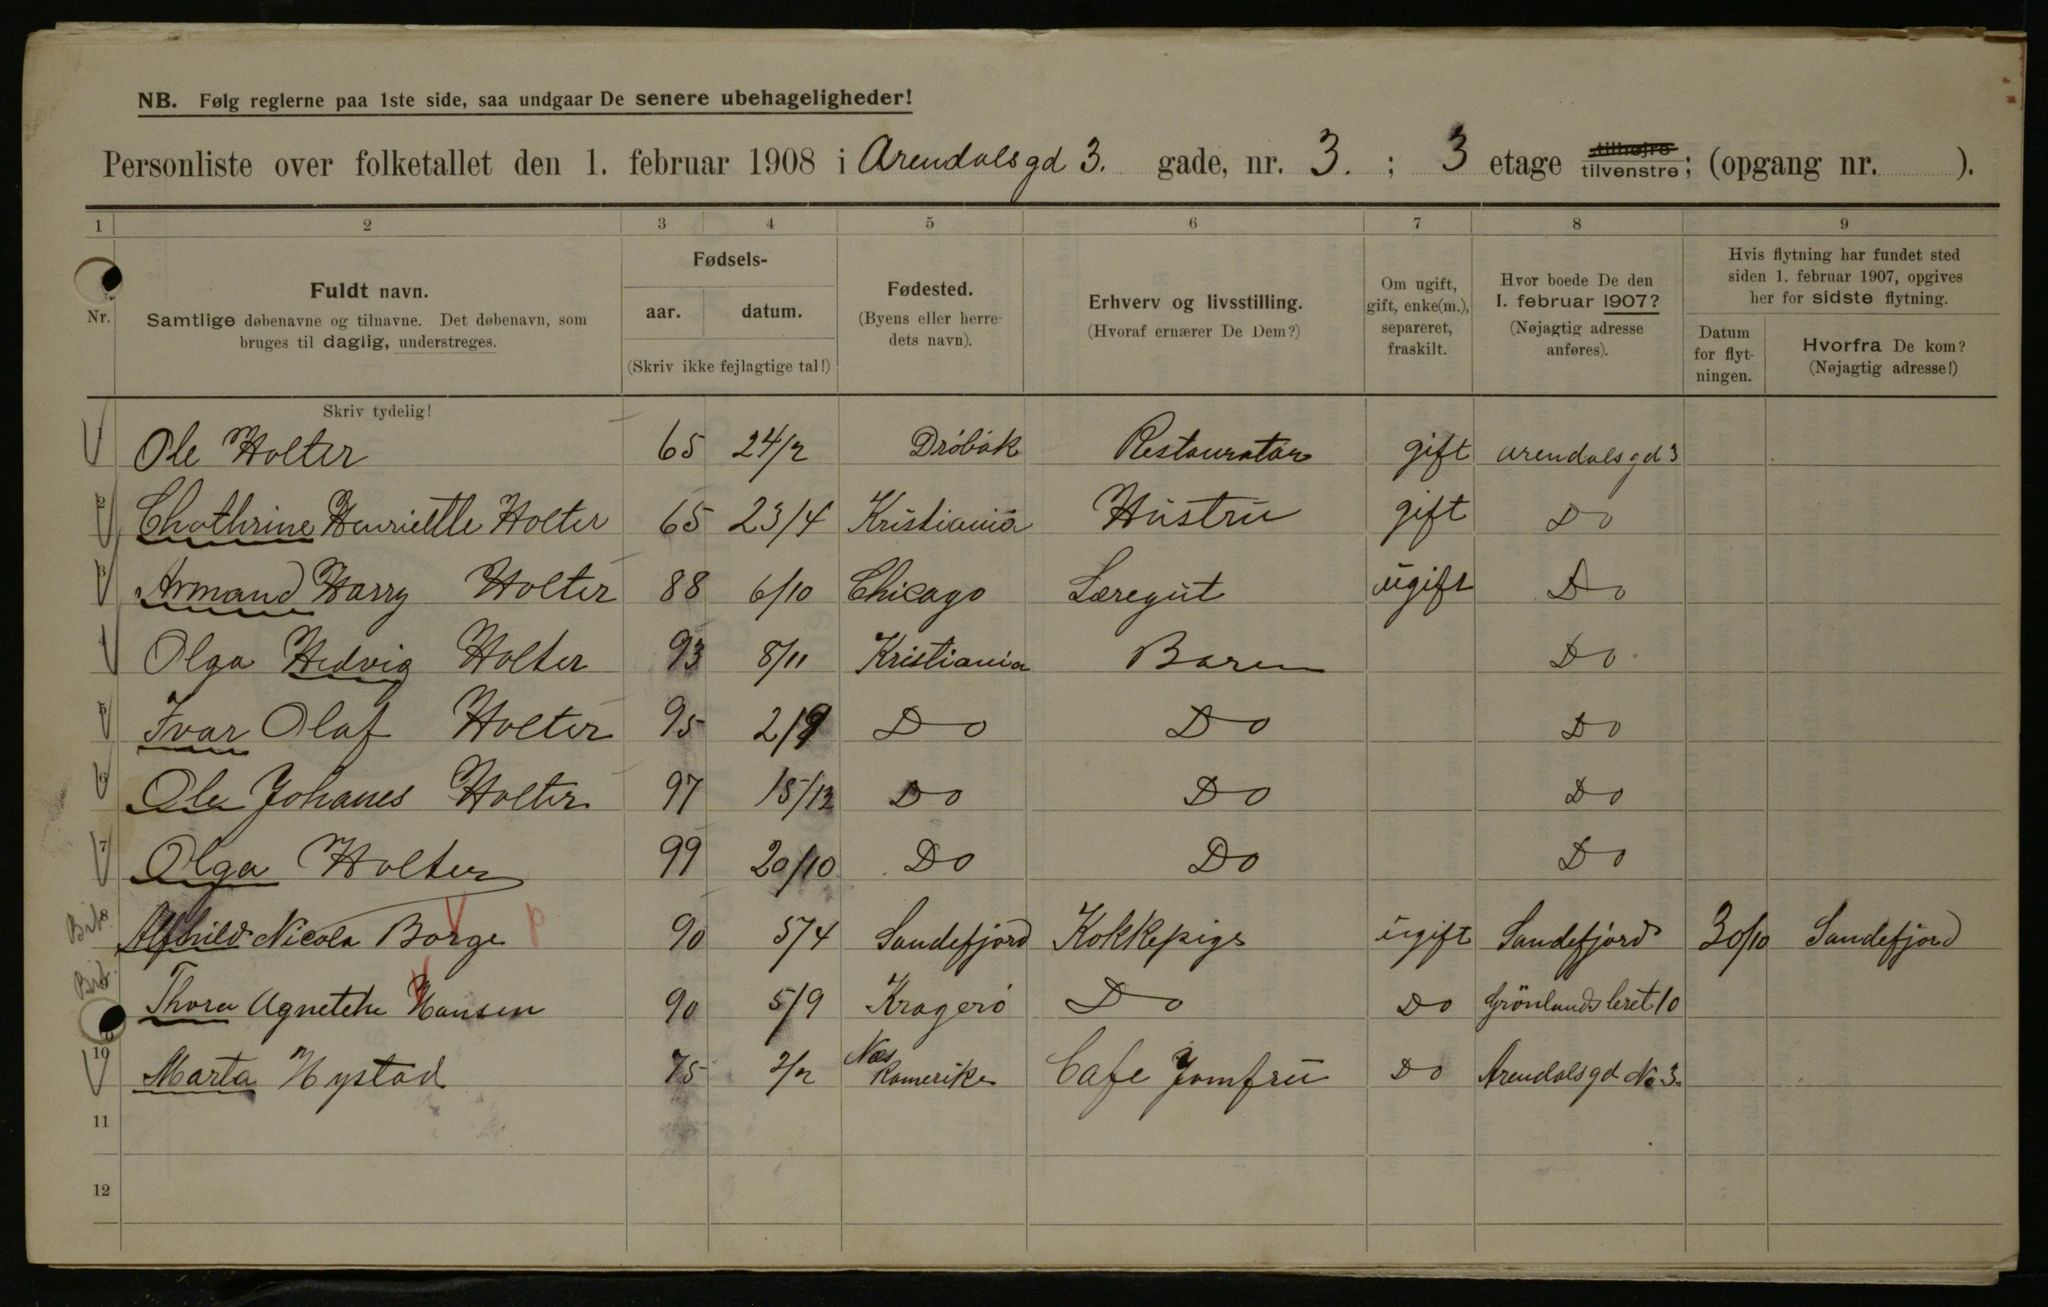 NB. Følg reglerne paa 1ste side, saa undgaar De senere ubehageligheder!
Personliste over folketallet den 1. februar 1908 i Arendalsgd 3. gade, nr. 3. ; 3 etage tilhøjre tilvenstre; (opgang nr. ).
1 2 3 4 5 6 7 8 9
Nr. Fuldt navn. Samtlige døbenavne og tilnavne. Det døbenavn, som bruges til daglig, understreges.
Skriv tydelig!
Fødsels-
aar. datum.
(Skriv ikke fejlagtige tal!)
Fødested.
(Byens eller herre-
dets navn).
Erhverv og livsstilling.
(Hvoraf ernærer De Dem?)
Om ugift,
gift, enke(m.),
separeret,
fraskilt.
Hvor boede De den
1. februar 1907?
(Nøjagtig adresse
anføres).
Hvis flytning har fundet sted
siden 1. februar 1907, opgives
her for sidste flytning.
Datum
for flyt-
ningen.
Hvorfra De kom?
(Nøjagtig adresse!)
1 Ole Holter 65 24/2 Dröbak Restauratør gift Arendalsgd 3
2 Chathrine Henriette Holter 65 23/4 Kristiania Hustru gift Do
3 Armand Harry Holter 88 6/10 Chicago Læregut ugift Do
4 Olga Hedvig Holter 93 8/11 Kristiania Barn Do
5 Ivar Olaf Holter 95 2/9 Do Do Do
6 Ole Johanes Holter 97 15/12 Do Do Do
7 Olga Holter 99 20/10 Do Do Do
8 Alfhild Nicola Borge p 90 5/4 Sandefjord Kokkepige ugift Sandefjord 30/10 Sandefjord
Thora Agnethe Hansen 90 5/9 Kragerö Do Do Grönlandsleret 10
10 Marta Nystad 75 2/2 Næs Romerike Cafe Jomfru Do Arendalsgd No 3.
11
12